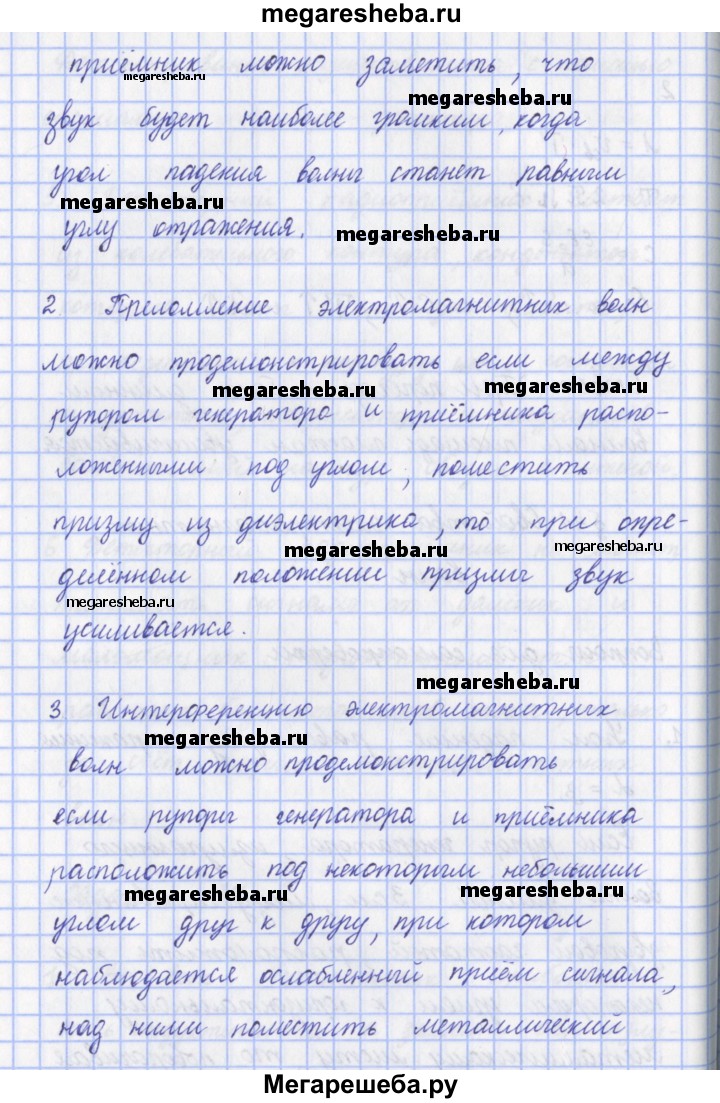 megaresheba.ru
приёмник можно заметить, что
megaresheba.ru
megaresheba.ru
звук будет наиболее громким, когда
угол падения волны станет равным
megaresheba.ru
углу отражения.
megaresheba.ru
2 Преломление электромагнитных волн
можно продемонстрировать если между
megaresheba.ru
megaresheba.ru
рупором генератора и приёмника распо-
ложенными под углом, поместить
призму из диэлектрика, то при опре-
megaresheba.ru
megaresheba.ru
делённом положении призмы звук
megaresheba.ru
усиливается.
megaresheba.ru
3 Интерференцию электромагнитных
megaresheba.ru
волн можно продемонстрировать
если рупоры генератора и приёмника
расположить под некоторым небольшим
megaresheba.ru
megaresheba.ru
углом друг к другу, при котором
наблюдается ослабленный приём сигнала,
над ними поместить металлический
Мегарешеба.ру